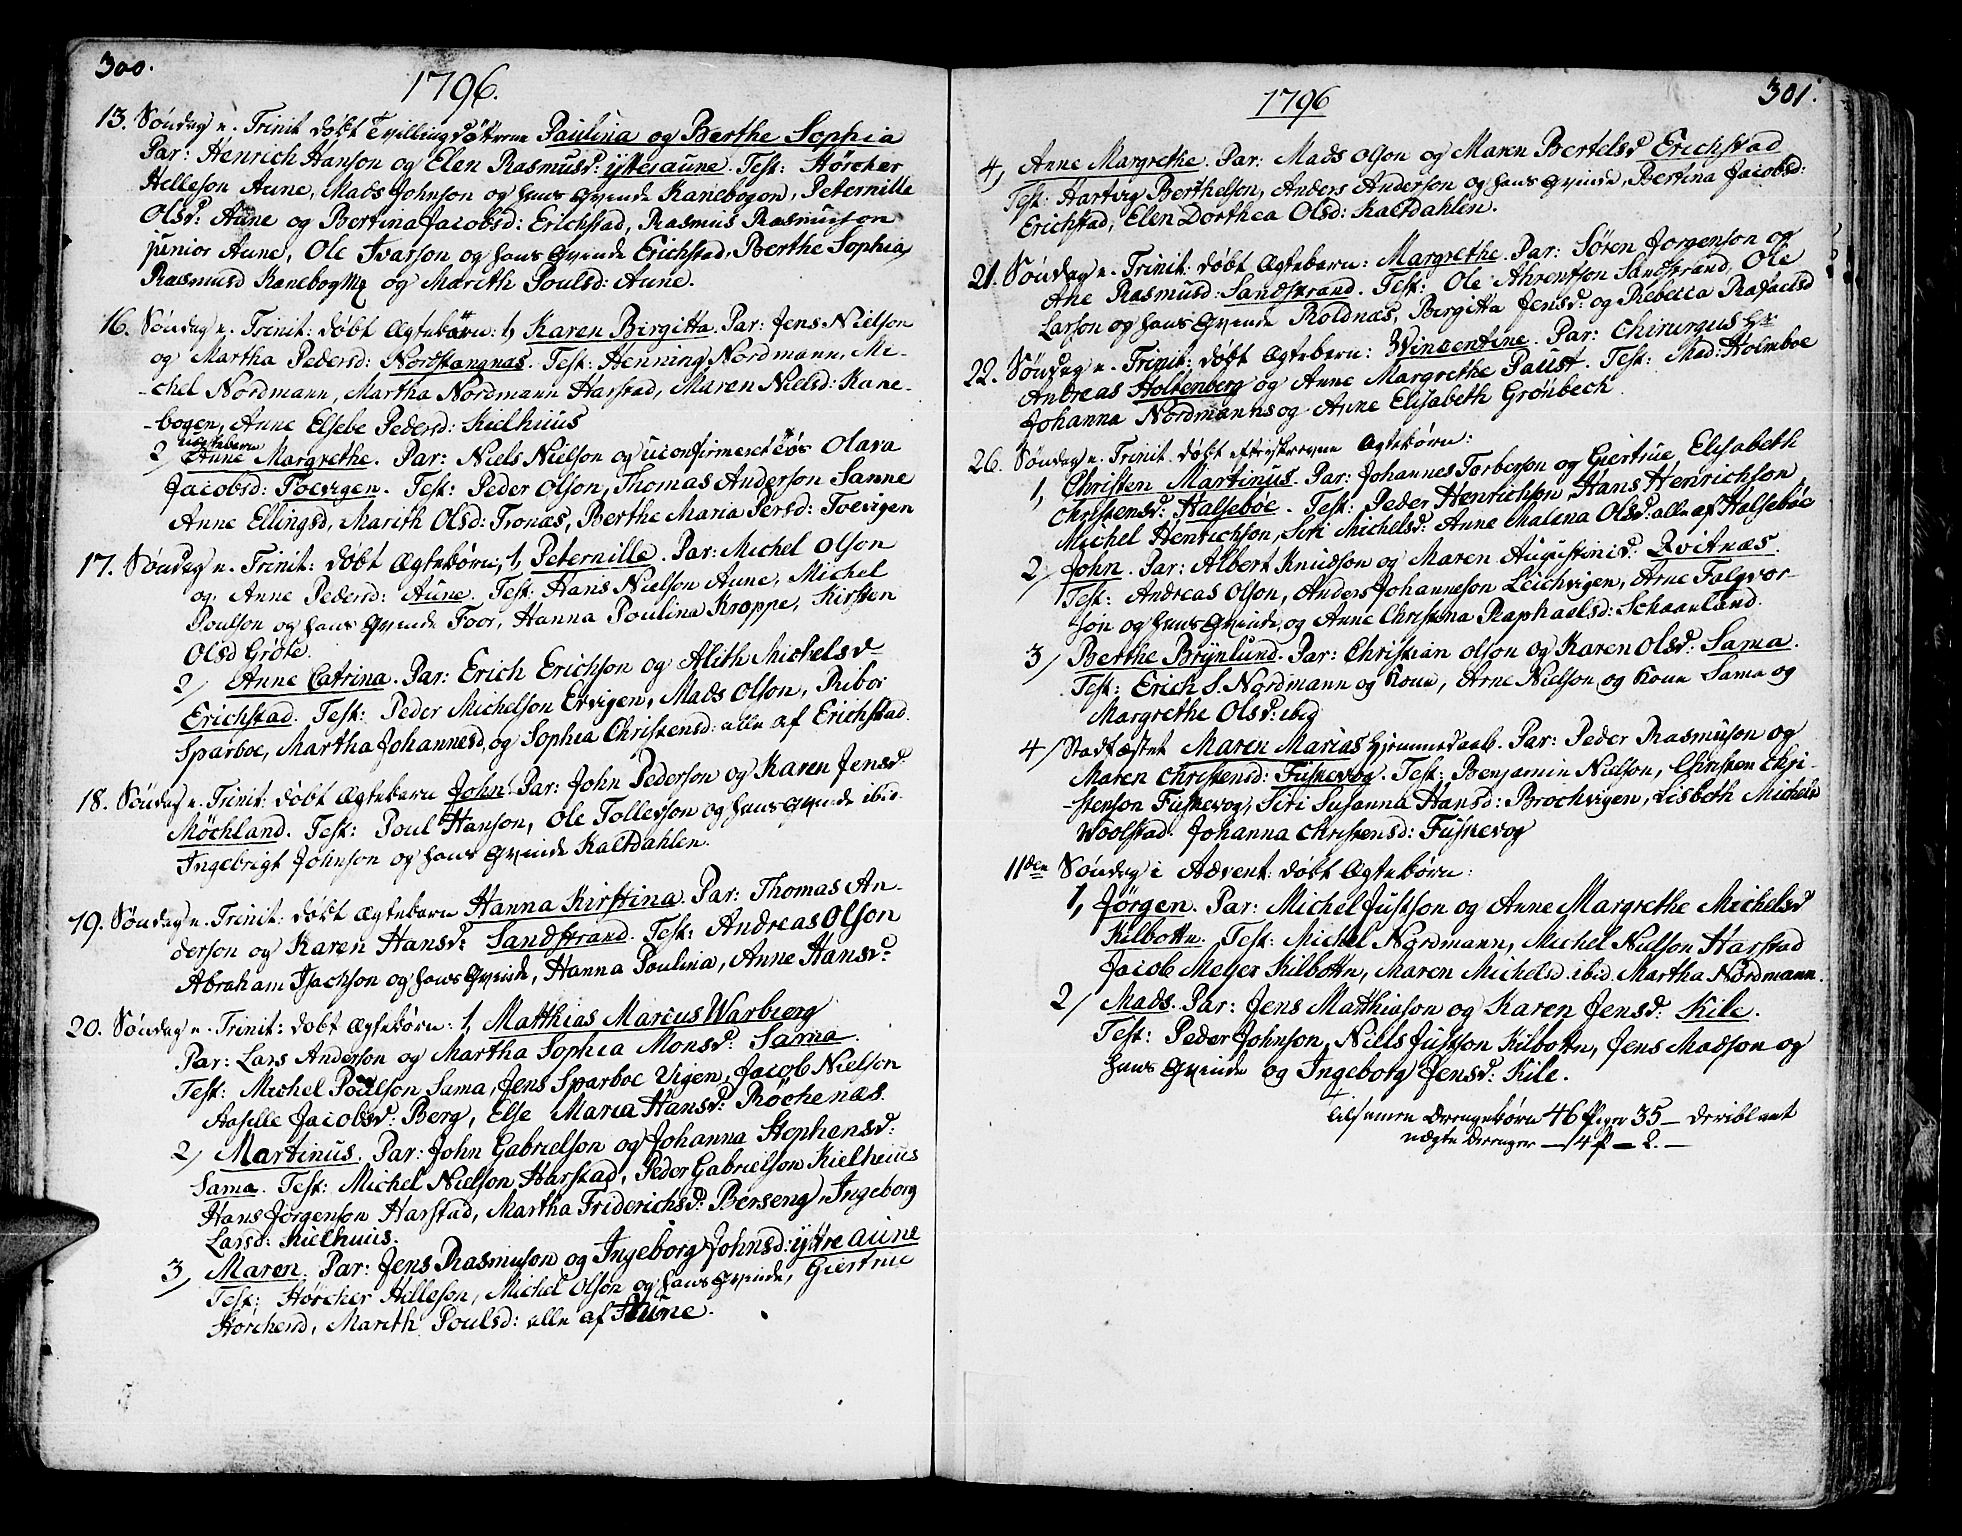 300.
1796.
13. Søndag e. Trinit døbt Tvillingdøtrene Paulina og Berthe Sophia
Par: Henrich Hanson og Elen Rasmusd: ytteraune. Test: Hørcher
Helleson Aune, Mads Johnson og hans Qvinde Kanebogen, Peternille
Olsd: Aune og Bertina Jacobsd: Erichstad, Rasmus Rasmuson
junior Aune, Ole Ivarson og hans Qvinde Erichstad, Berthe Sophia
Rasmusd Kanebogen og Marith Poulsd: Aune.
16. Søndag e. Trinit: døbt Ægtebørn: 1, Karen Birgitta. Par: Jens Nielson
og Martha Pedersd: Nordstangnæs. Test: Henning Nordmann, Mi-
-chel Nordmann, Martha Nordmann Harstad, Maren Nielsd: Kane-
-bogen, Anne Elsebe Pedersd: Kielhuus
uægtebarn
2/ Anne Margrethe. Par: Niels Nielson og uconfirmeret Tøs Olava
Jacobsd: Toevigen. Test: Peder Olson, Thomas Anderson Sanne
Anne Ellingsd, Marith Olsd: Tronæs, Berthe Maria Persd: Toevigen
17. Søndag e. Trinit: døbt Ægtebørn, 1, Peternille. Par: Michel Olson
og Anne Pedersd: Aune. Test: Hans Nielson Aune, Michel
Poulson og hans Qvinde Foor, Hanna Poulina Kroppe, Kirsten
Olsd Grøte.
2/ Anne Catrina. Par: Erich Erichson og Alith Michelsd
Erichstad. Test: Peder Michelson Ervigen, Mads Olson, Ribor
Sparboe, Martha Johannesd, og Sophia Christensd: alle af Erichstad.
18. Søndag e. Trinit: døbt Ægtebarn John. Par: John Pederson og Karen Jensd
Møchland. Test: Poul Hanson, Ole Tollevson og hans Qvinde ibid.
Ingebrigt Johnson og hans Qvinde Kaltdahlen.
19. Søndag e. Trinit: døbt Ægtebarn Hanna Kirstina. Par: Thomas An-
derson og Karen Hansd: Sandstrand. Test: Andreas Olson
Abraham Isachson og hans Qvinde, Hanna Poulina, Anne Hansd:
20. Søndag e. Trinit: døbt Ægtebørn: 1, Matthias Marcus Warbierg
Par: Lars Anderson og Martha Sophia Monsd: Sama.
Test: Michel Poulson Sama, Jens Sparboe Vigen, Jacob Nielson
Aaselle Jacobsd: Berg, Else Maria Hansd: Røchenæs.
2/ Martinus. Par: John Gabrielson og Johanna Stephensd:
Sama. Test: Michel Nielson Harstad, Peder Gabrielson Kielhuus
Hans Jørgenson Harstad, Martha Friderichsd: Berseng, Ingeborg
Larsd: Kielhuus.
3/ Maren. Par: Jens Rasmuson og Ingeborg Johnsd: yttre aune
Test: Hørcher Hilleson, Michel Olson og hans Qvinde, Giertrue
Hørchersd, Marith Poulsd: alle af Aune.
1796
301.
4/ Anne Margrethe. Par: Mads Olson og Maren Bertelsd Erichstad
Test: Hartvig Berthelson, Anders Anderson og hans Qvinde, Bertina Jacobsd:
Erichstad, Elen Dorthea Olsd: Kaltdahlen.
21. Søndag e. Trinit: døbt Ægtebarn: Margrethe. Par: Søren Jørgenson og
Ane Rasmusd: Sandstrand. Test: Ole Ahrentson Sandstrand, Ole
Larson og hans Qvinde Roldnæs, Birgitta Jensd: og Rebecca Rafaelsd
22. Søndag e. Trinit: døbt Ægtebarn: Wincentine. Par: Chirurgus Hr
Andreas Holtenberg og Anne Margrethe Paust. Test: Mad: Holmboe
Johanna Nordmanns og Anne Elisabeth Grønbech.
26. Søndag e. Trinit: døbt efterskrevne Ægtebørn:
1, Christen Martinus. Par: Johannes Torberson og Giertrue Elisabeth
Christensd: Halsebøe. Test: Peder Henrichson, Hans Henrichson
Michel Henrichson, Siri Michelsd: Anne Malena Olsd: alle af Halsebøe
2/ John. Par: Albert Knudson og Maren Augustinid: Qvitnæs.
Test: Andreas Olson, Anders Johanneson Leichvigen, Arne Falqvor-
son og hans Qvinde, og Anne Christina Raphaelsd: Schaanland.
3/ Berthe Brynlund. Par: Christian Olson og Karen Olsd: Sama.
Test: Erich S. Nordmann og Kone, Arne Nielson og Kone Sama og
Margrethe Olsd: ibid
4/ Stadfæstet Maren Marias Hjemmedaab. Par: Peder Rasmuson og
Maren Christensd: Fuskevog. Test: Benjamin Nielson, Christen Chri-
-stenson Fuskevog, Siri Susanna Hansd: Brochvigen, Lisbeth Michelsd
Woolstad. Johanna Christensd: Fuskevog
11den Søndag i Advent: døbt Ægtebørn:
1, Jørgen. Par: Michel Justson og Anne Margrethe Michelsd
Kilbottn. Test: Michel Nordmann, Michel Nielson Harstad
Jacob Meyer Kilbottn, Maren Michelsd ibid. Martha Nordmann.
2/ Mads. Par: Jens Matthiason og Karen Jensd: Kile.
Test: Peder Johnson, Niels Justson Kilbottn, Jens Madson og
hans Qvinde og Ingeborg Jensd: Kile.
tilsamen Drengebørn 46 Piger 35 – Deriblant
uægte Drenger – 4 P – 2. –